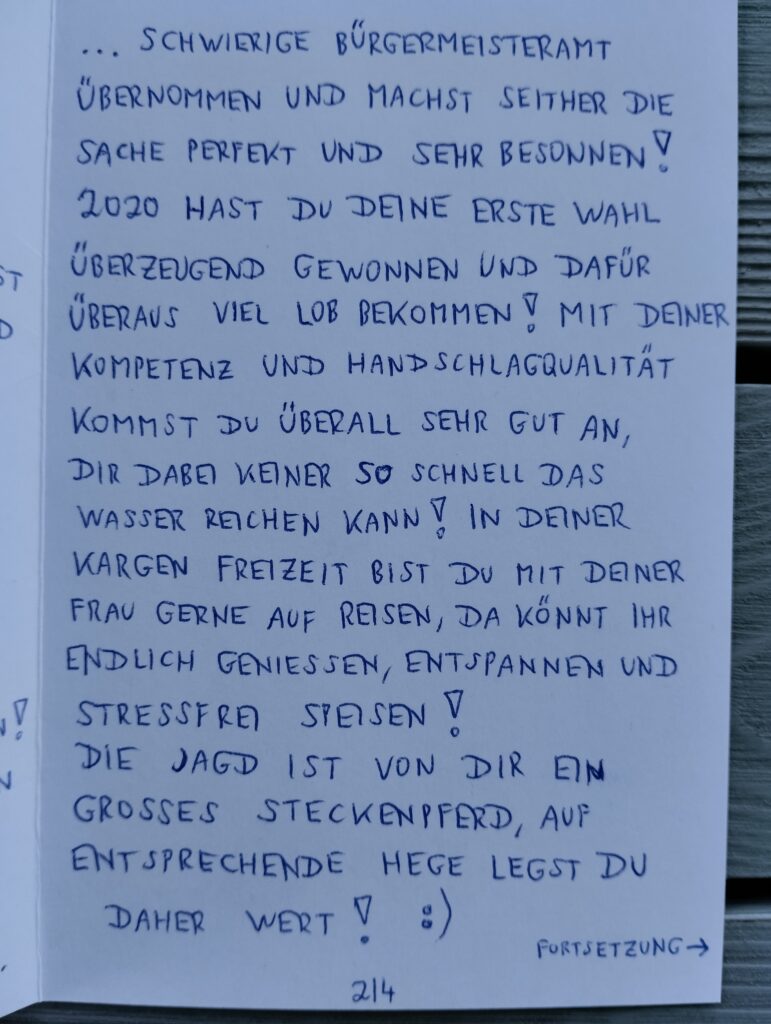 ... SCHWIERIGE BÜRGERMEISTERAMT
ÜBERNOMMEN UND MACHST SEITHER DIE
SACHE PERFEKT UND SEHR BESONNEN!
2020 HAST DU DEINE ERSTE WAHL
ÜBERZEUGEND GEWONNEN UND DAFÜR
ÜBERAUS VIEL LOB BEKOMMEN! MIT DEINER
KOMPETENZ UND HANDSCHLAGQUALITÄT
KOMMST DU ÜBERALL SEHR GUT AN,
DIR DABEI KEINER SO SCHNELL DAS
WASSER REICHEN KANN! IN DEINER
KARGEN FREIZEIT BIST DU MIT DEINER
FRAU GERNE AUF REISEN, DA KÖNNT IHR
ENDLICH GENIESSEN, ENTSPANNEN UND
STRESSFREI SPEISEN!
DIE JAGD IST VON DIR EIN
GROSSES STECKENPFERD, AUF
ENTSPRECHENDE HEGE LEGST DU
DAHER WERT! :)
FORTSETZUNG→
2/4